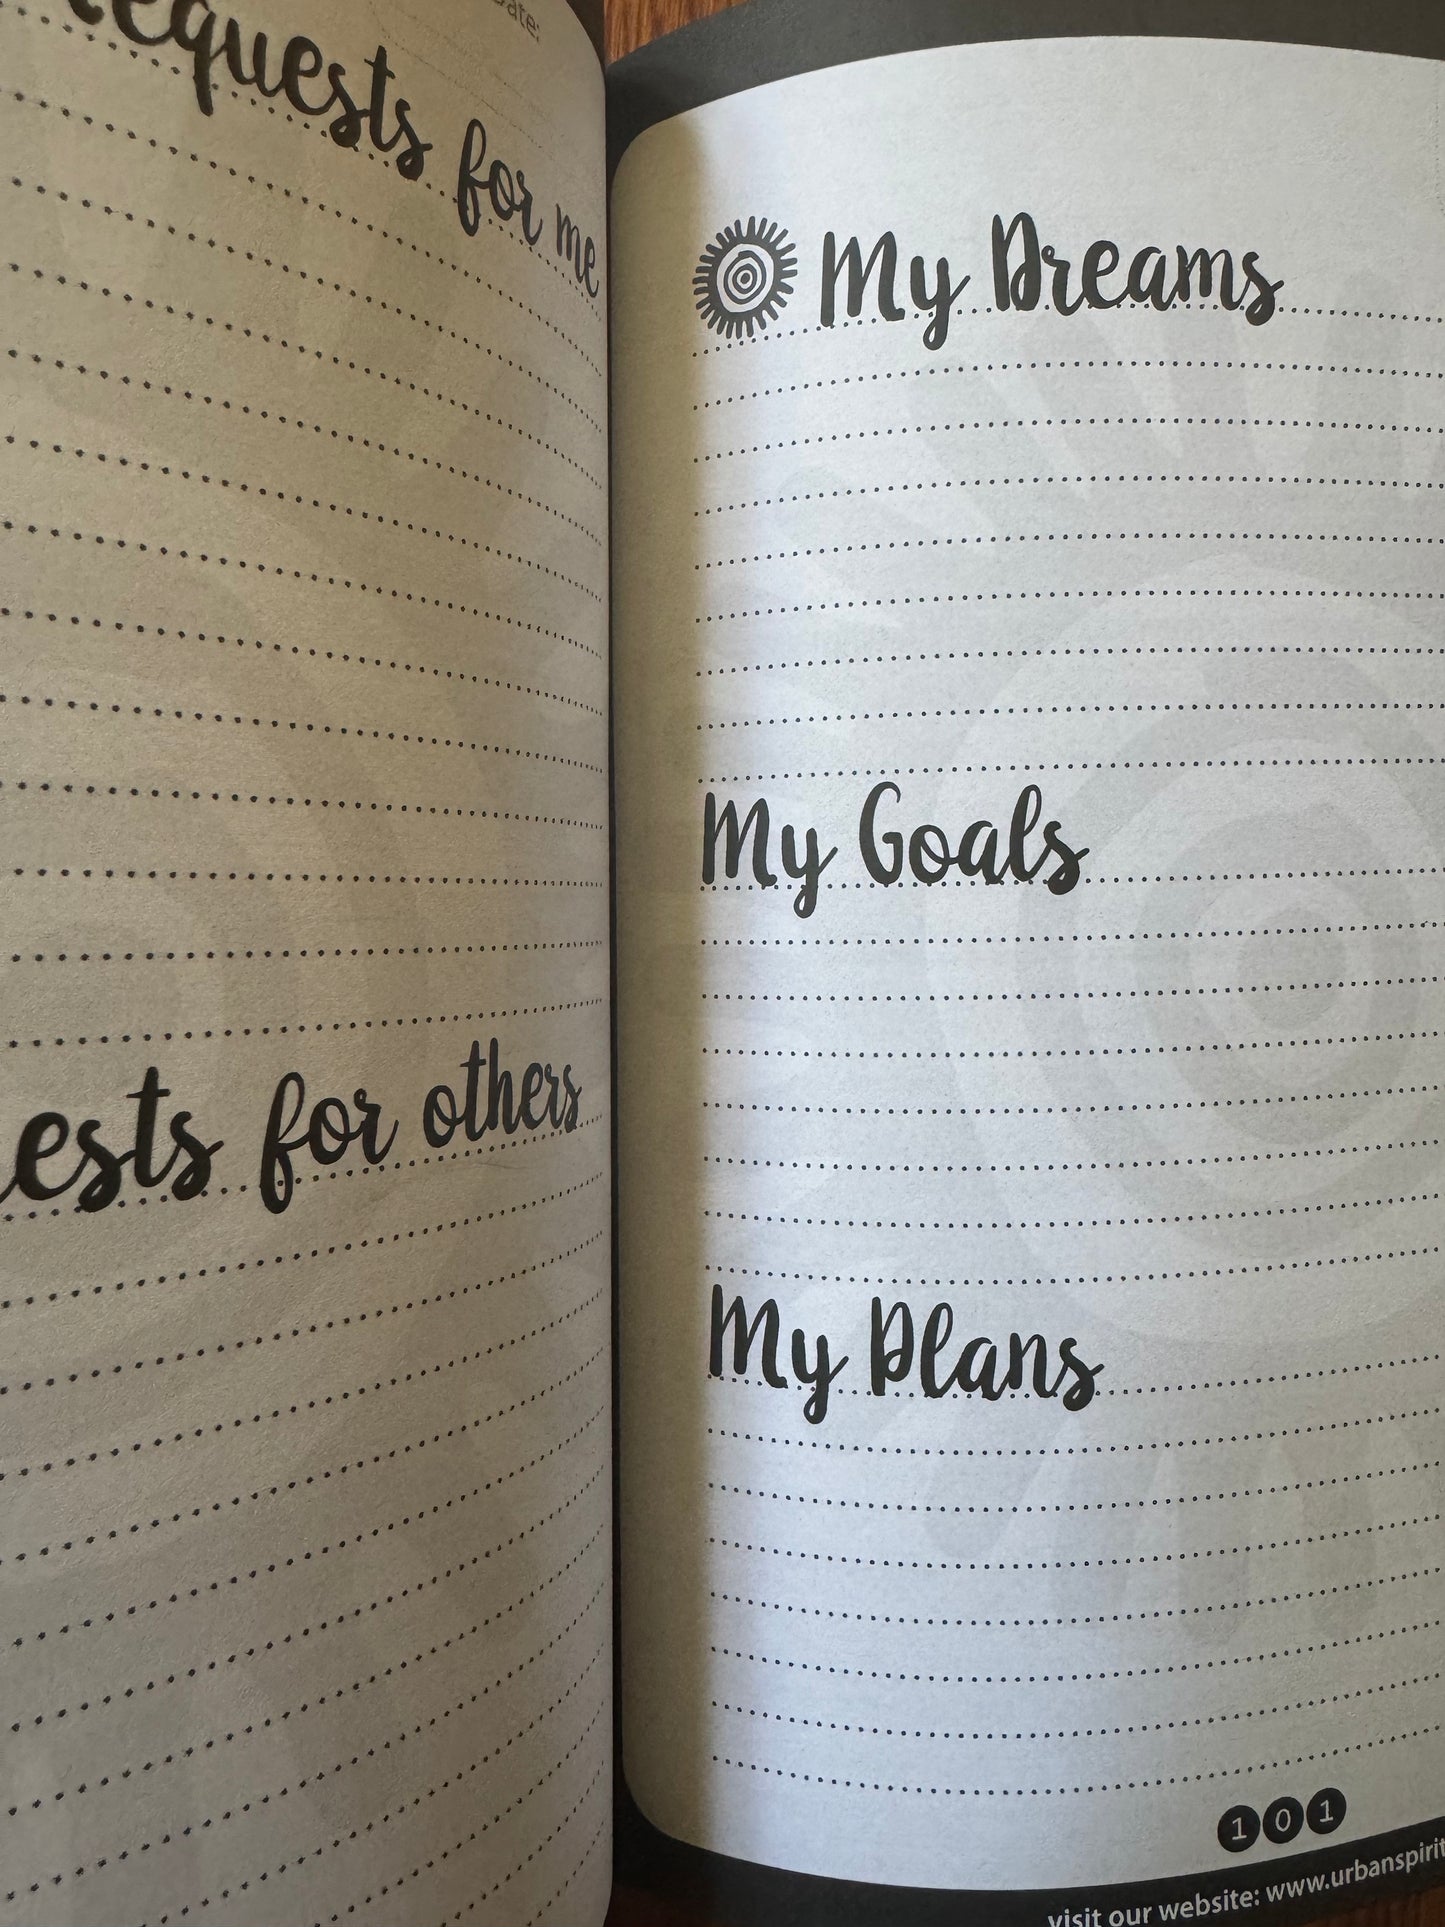 Date:
Requests for me
ests for others
My Dreams
My Goals
My Plans
101
visit our website: www.urbanspirit